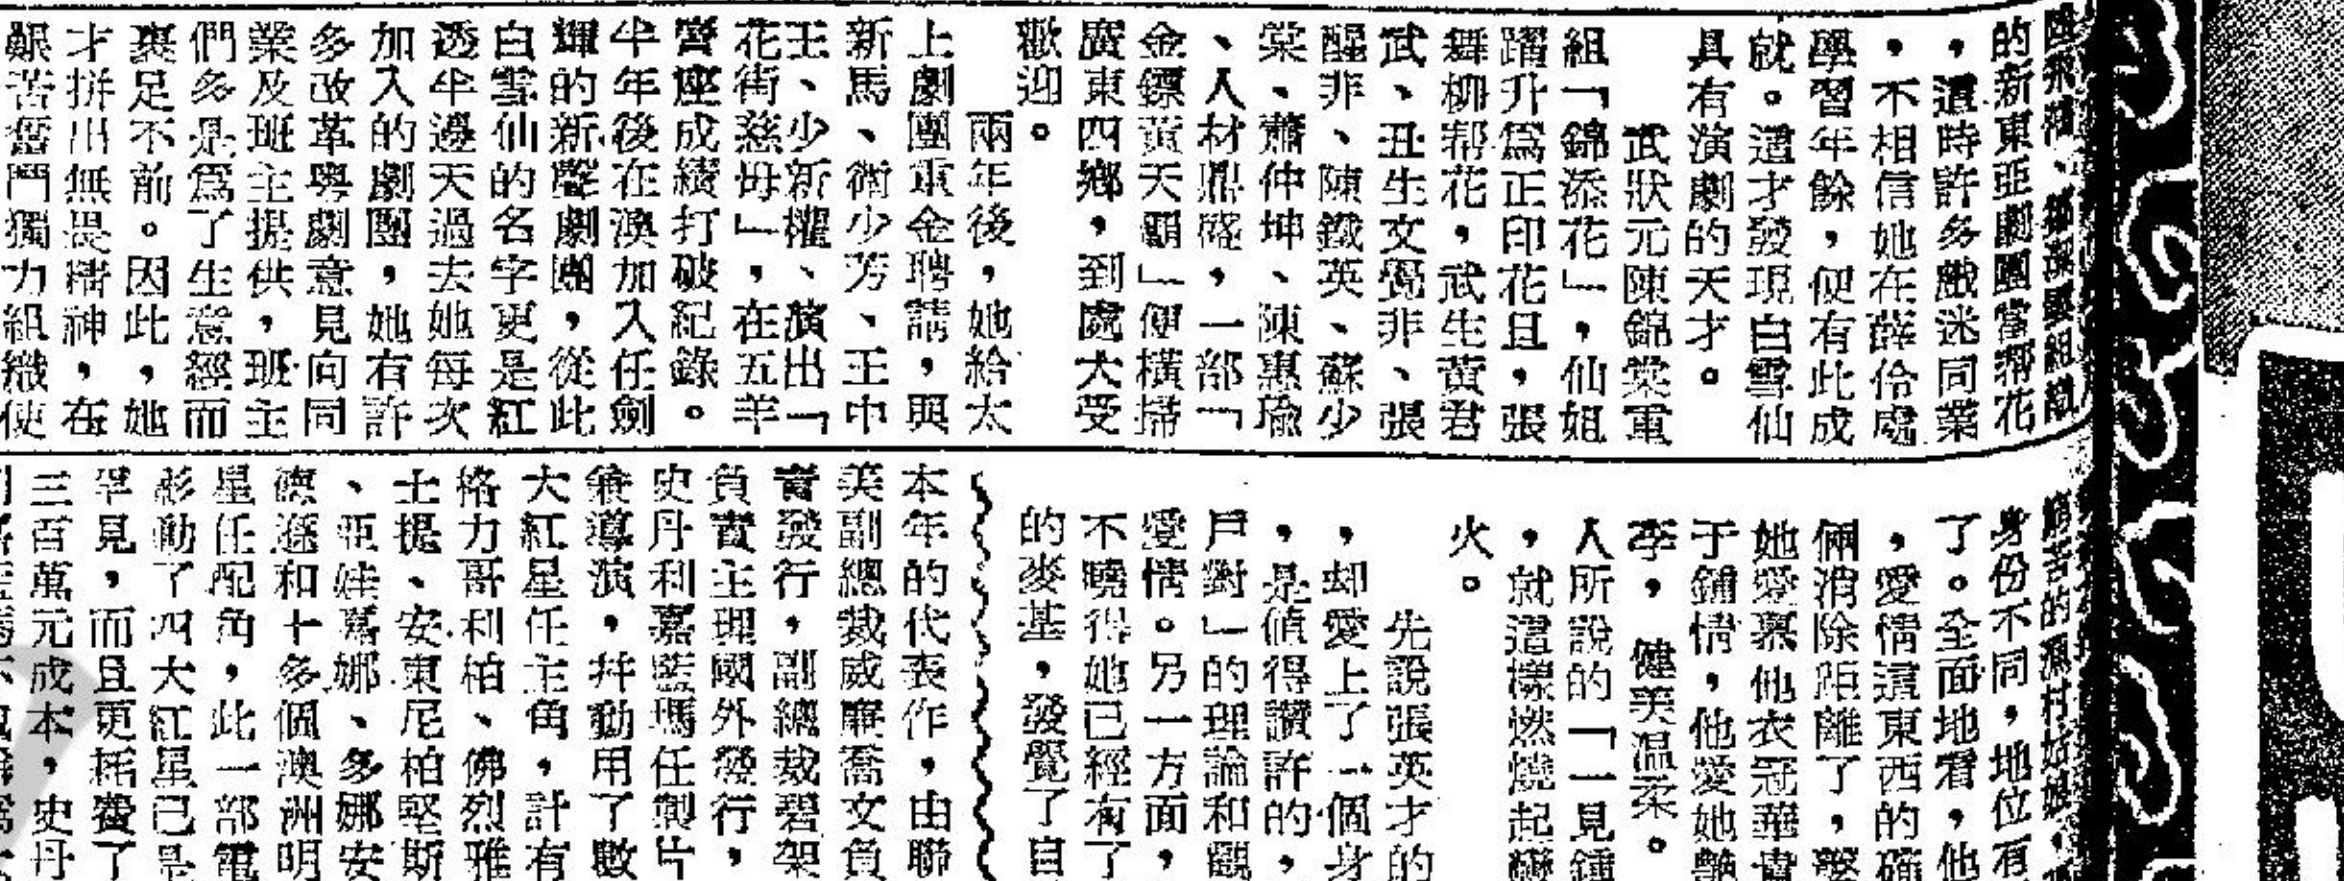 的新東亞劇團當帮花
，這時許多戲迷同業
，不相信她在薛伶處
學習年餘，便有此成
就。這才發現白雪仙
具有演劇的天才。
武狀元陳錦棠軍
組「錦添花」，仙姐
躍升爲正印花旦，張
舞柳帮花，武生黃君
武、丑生文覺非、張
醒非、陳鐵英、蘇少
棠、蕭仲坤、陳惠瑜
、人材鼎盛，一部「
金鏢黃天霸」便橫掃
廣東四鄉，到處大受
歡迎。
兩年後，她給太
上劇團重金聘請，與
新馬、衛少芳、王中
王、少新權、演出「
花街慈母」，在五羊
賣座成績打破紀錄。
半年後在澳加入任劍
輝的新聲劇團，從此
白雪仙的名字更是紅
透半邊天過去她每次
加入的劇團，她有許
多改革粵劇意見向同
業及班主提供，班主
們多是爲了生意經而
裹足不前。因此，她
才拼出無畏精神，在
艱苦奮鬥獨力組織使
身份不同，地位有
了。全面地看，他
，愛情這東西的確
倆消除距離了，
她愛慕他衣冠華貴
于鋪情，他愛她艷
李，健美温柔。
人所說的「一見鍾
，就這樣燃燒起戀
火。
先說張英才的
，却愛上了一個身
，是值得讚許的，
戶對」的理論和觀
愛情。另一方面，
不曉得她已經有了
的麥基，發覺了自
本年的代表作，由聯
美副總裁威廉喬文負
責發行，副總裁碧架
負責主理國外發行，
史丹利嘉藍瑪任製片
兼導演，幷動用了數
大紅星任主角，計有
格力哥利柏、佛烈雅
士提、安東尼柏堅斯
、亞娃嘉娜、多娜安
德遜和十多個澳洲明
星任配角，此一部電
影動了四大紅星已是
罕見，而且更耗費了
三百萬元成本，史丹